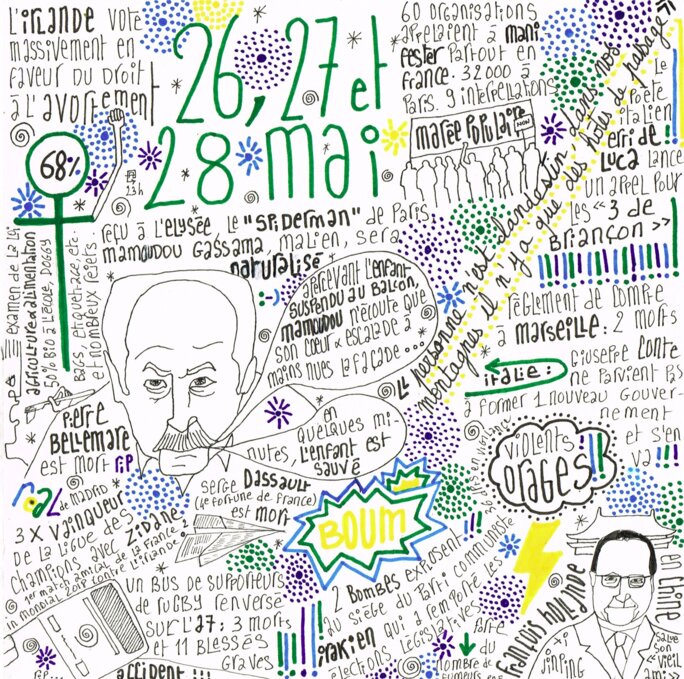 L'IRLANDE VOTE
MASSIVEMENT EN
FAVEUR DU DROIT
À L'AVORTEMENT
68%
23h
26, 27 et
28 mai
60 ORGANISATIONS
APPELAIENT À MANI
FESTER PARTOUT EN
FRANCE. 32000 à
PARIS. 9 interpellations
MARÉE POPULAIRE
NON
« personne n'est clandestin dans nos
montagnes il n'y a que des hôtes de passage »
Le
poète
italien
erri de
LUCA LANCE
UN APPEL POUR
les « 3 de
BRIANÇON »
REÇU À L'ELYSÉE LE "SPIDERMAN" de PARIS
MAMOUDOU GASSAMA, MALIEN, SERA
NATURALISÉ
:-)
APERCEVANT L'ENFANT
SUSPENDU AU BALCON,
MAMOUDOU N'ÉCOUTE QUE
SON CŒUR & ESCALADE À
MAINS NUES LA FAÇADE...
en
QUELQUES MI
NUTES, L'ENFANT EST
SAUVÉ
EXAMEN DE LA LOI
AGRICULTURE & ALIMENTATION
50% BIO À L'ÉCOLE, DOGGY
BAGS, ETIQUETTAGE, ETC.
ET NOMBREUX REJETS
PIERRE
BELLEMARE
est mort RIP
RÈGLEMENT DE COMPTE
à MARSEILLE : 2 MORTS
ITALIE :
GIUSEPPE CONTE
NE PARVIENT PAS
à FORMER 1 NOUVEAU GOUVER-
NEMENT
ET S'EN
VA !!!
VIOLENTS
ORAGES !!
RÉAL
DE MADRID
3 X VAINQUEUR
DE LA LIGUE DES
CHAMPIONS AVEC ZIDANE
1er match amical de la France
IN MONDIAL 2018 CONTRE L'IRLANDE
SERGE DASSAULT
(4e FORTUNE DE FRANCE)
est MORT
BOUM
UN BUS DE SUPPORTEURS
de RUGBY RENVERSÉ
SUR L'A7 : 3 MORTS
et 11 BLESSÉS
GRAVES
ACCIDENT !!!
2 BOMBES EXPLOSENT
AU SIÈGE DU PARTI COMMUNISTE
IRAKIEN QUI A REMPORTÉ LES
ÉLECTIONS LÉGISLATIVES
NOMBRE DE
FUMEURS
FRANÇOIS HOLLANDE
en CHINE
XI
JINPING
SALUE
SON
« VIEIL
AMI »